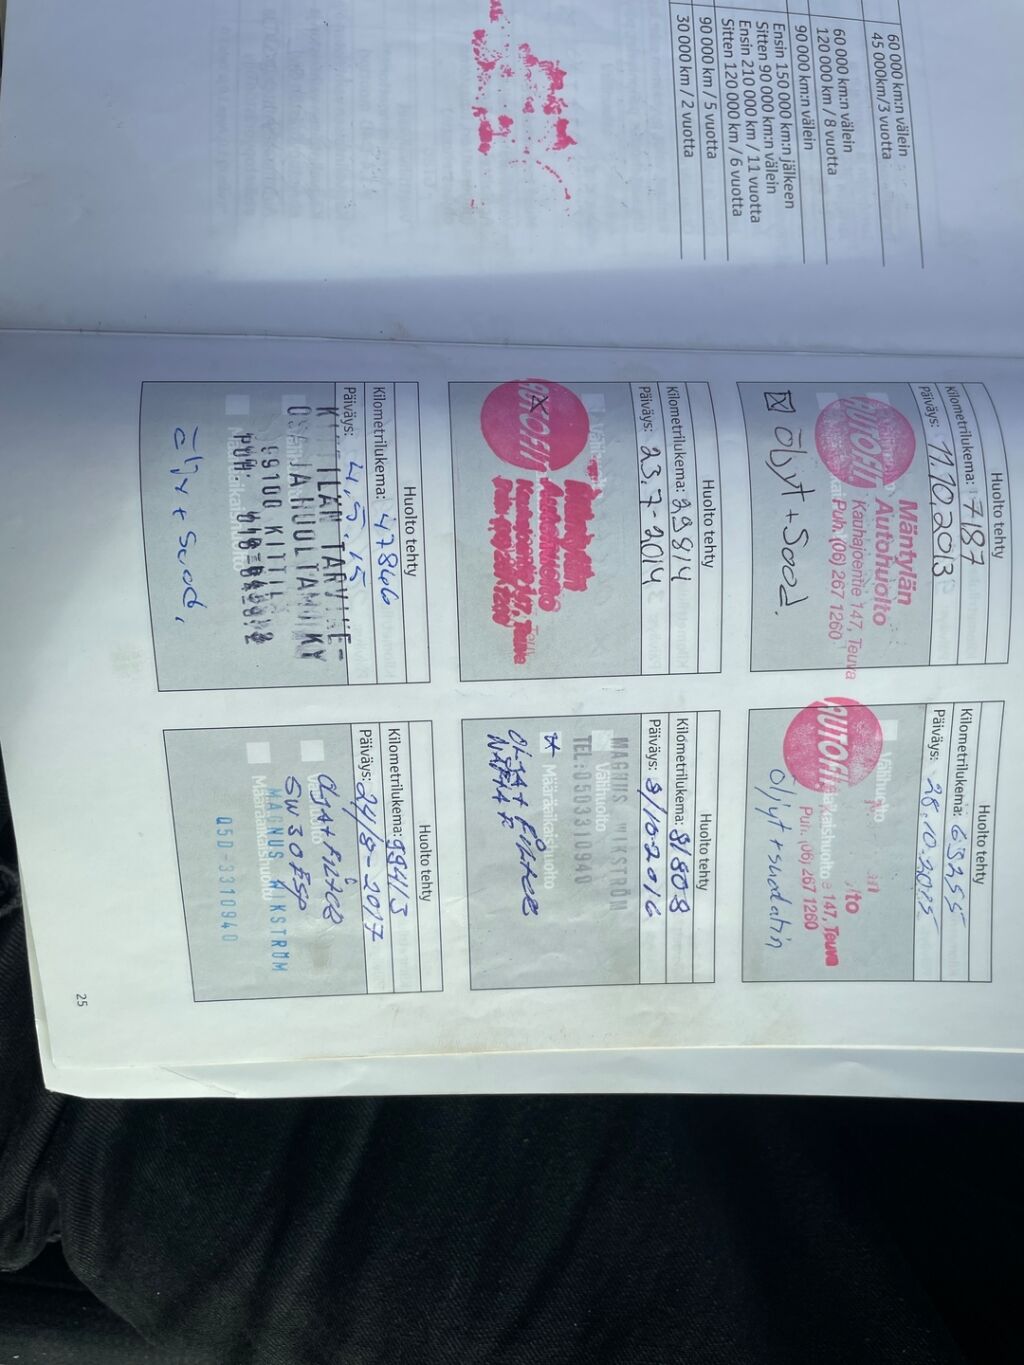 60 000 km:n välein
45 000km/3 vuotta
60 000 km:n välein
120 000 km / 8 vuotta
90 000 km:n välein
Ensin 150 000 km:n jälkeen
Sitten 90 000 km:n välein
Ensin 210 000 km / 11 vuotta
Sitten 120 000 km / 6 vuotta
90 000 km / 5 vuotta
30 000 km / 2 vuotta
Huolto tehty
Kilometrilukema: 17187
Päiväys: 11.10.2013
AUTOFIT
Mäntylän
Autohuolto
Kauhajoentie 147, Teuva
Puh. (06) 267 1260
Öljyt + Suod.
Huolto tehty
Kilometrilukema: 63255
Päiväys: 28.10.2015
AUTOFIT
Välihuolto
147, Teuva
Puh. (06) 267 1260
öljyt + suodatin
Huolto tehty
Kilometrilukema: 29914
Päiväys: 23.7-2014
Mäntylän
Autohuolto
Kauhajoentie 147, Teuva
Huolto tehty
Kilometrilukema: 81808
Päiväys: 8/10-2016
MAGNUS WIKSTRÖM
Välihuolto
TEL:0503310940
Määräaikaishuolto
Huolto tehty
Kilometrilukema: 47866
Päiväys: 4.5.15
KITTILÄN TARVIKE-
OSA JA HUOLTAMO KY
99100 KITTILÄ
öljyt + suod.
Huolto tehty
Kilometrilukema: 99413
Päiväys: 24/8-2017
Välihuolto
5W30 ESP
Määräaikaishuolto
MAGNUS WIKSTRÖM
050-3310940
25